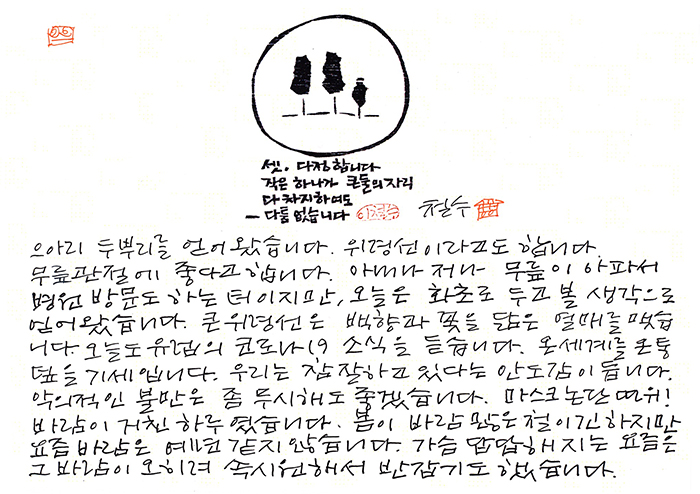 셋. 다정합니다
작은 하나가 큰둘의 자리
다 차지하여도
— 다툼 없습니다
철수
으아리 두뿌리를 얻어왔습니다. 위령선이라고도 합니다.
무릎관절에 좋다고 합니다. 아내나 저나 무릎이 아파서
병원 방문도 하는 터이지만, 오늘은 화초로 두고 볼 생각으로
얻어왔습니다. 큰위령선은 백향과 꽃을 닮은 열매를 맺습
니다. 오늘도 유럽의 코로나19 소식을 듣습니다. 온세계를 온통
덮을 기세입니다. 우리는 참 잘하고 있다는 안도감이 듭니다.
악의적인 불만은 좀 무시해도 좋겠습니다. 마스크 논란 따위!
바람이 거친 하루였습니다. 봄이 바람 많은 철이긴 하지만
요즘 바람은 예년 같지않습니다. 가슴 답답해지는 요즘은
그 바람이 오히려 속시원해서 반갑기도 했습니다.